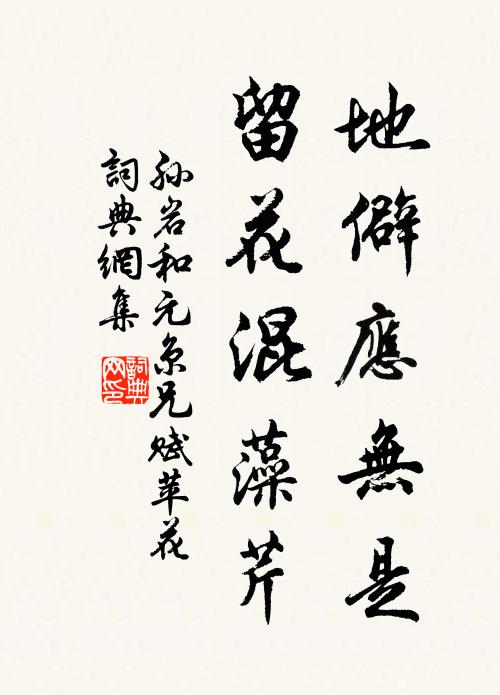 地僻應無是
留花混藻芹
孫岩和元京兄賦苹花
詞典網集
詞典网印